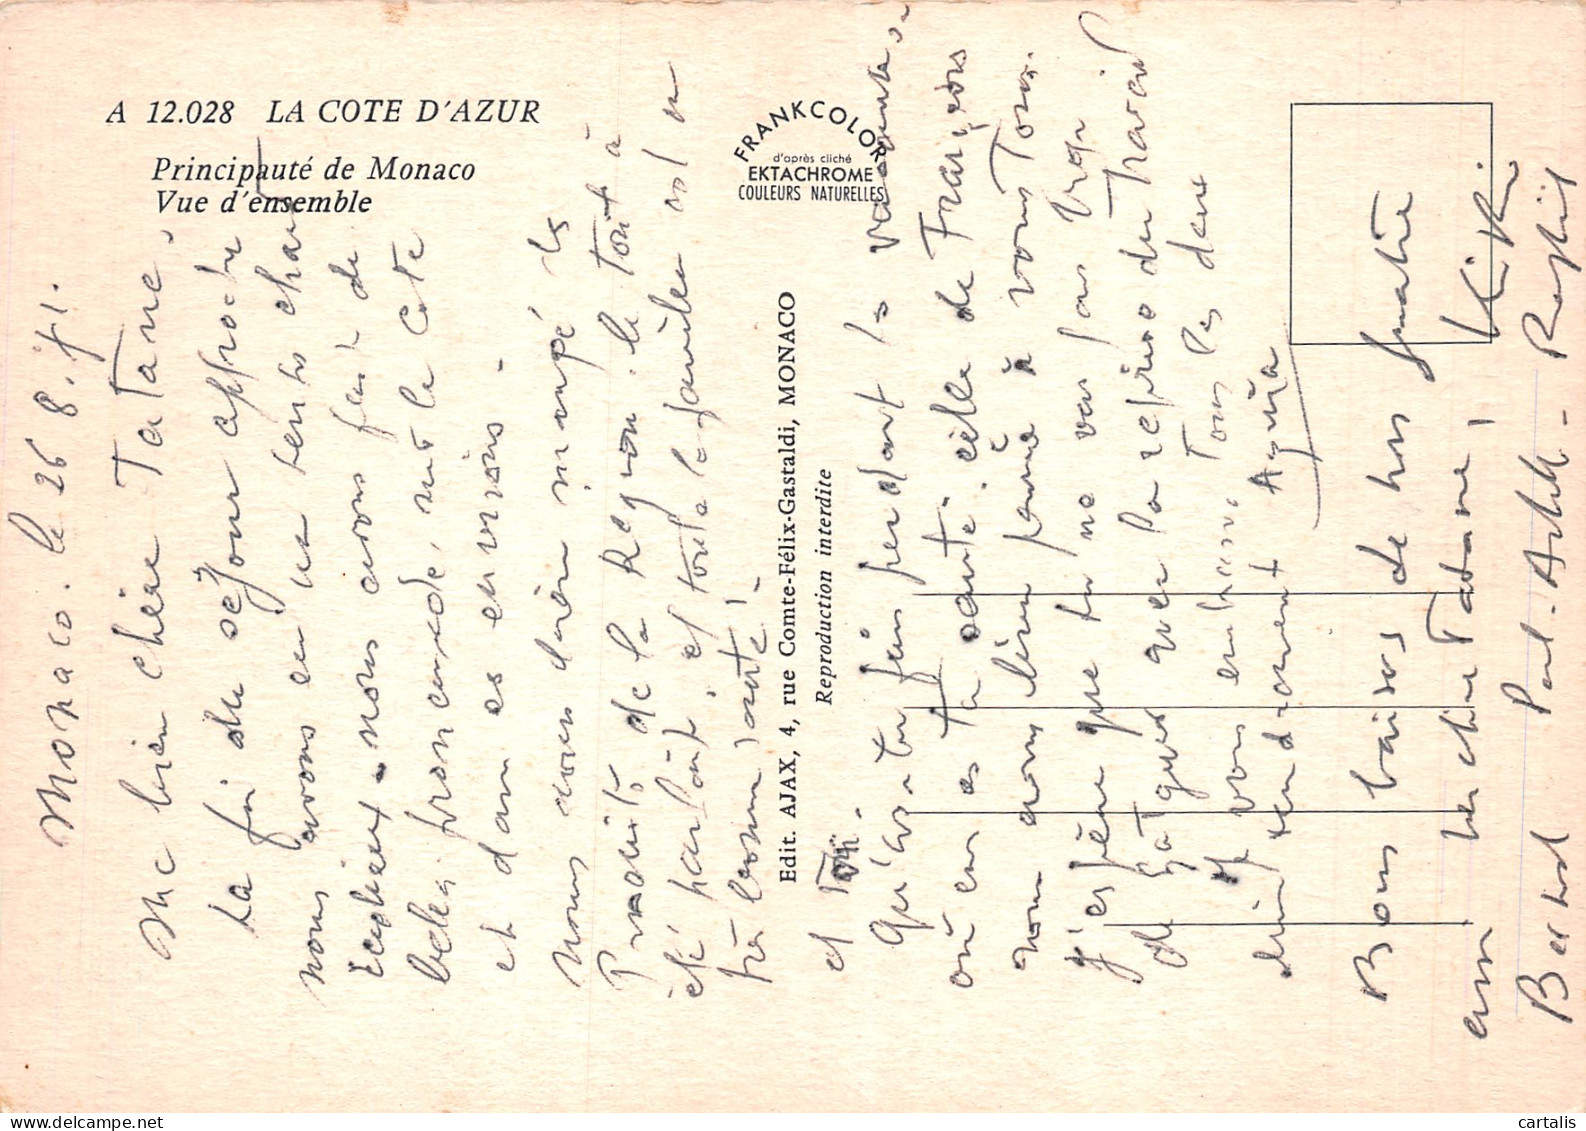 A 12.028 LA COTE D'AZUR
Principauté de Monaco
Vue d'ensemble
FRANKCOLOR
d'après cliché
EKTACHROME
COULEURS NATURELLES
Edit. AJAX, 4, rue Comte-Félix-Gastaldi, MONACO
Reproduction interdite
Monaco. le 26.8.71.
Ma bien chère Tatane,
La fin du séjour approche
nous avons eu un temps
nous avons fait de
belles promenades, sur la Côte
et dans les environs -
Nous avons bien mangé les
Produits de la Région. le tout à
été parfait, et toute la famille est en
très bonne santé! -
et Toi.
Qu'as-tu fais pendant les vacances.
où en es ta santé. celle de François
nous avons bien pensé à vous Tous.
J'espère que tu ne vas pas trop
de avec la reprise du travail
Je vous embrasse Tous les deux
tendrement
Bons baisers de
ma chère Tatane!
Bernard Paul-
cartalis